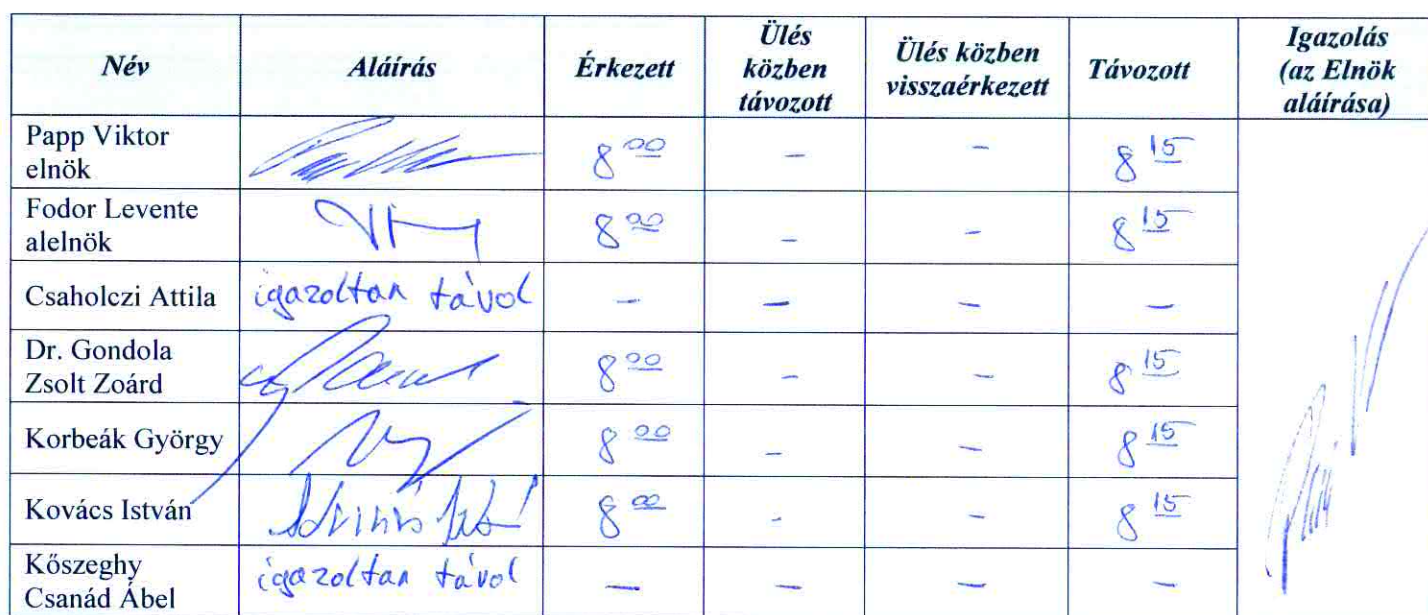 Név Aláírás Érkezett Ülés közben távozott Ülés közben visszaérkezett Távozott Igazolás (az Elnök aláírása)
Papp Viktor
elnök 8 00 - - 8 15
Fodor Levente
alelnök 8 00 - - 8 15
Csaholczi Attila igazoltan távol - - - -
Dr. Gondola
Zsolt Zoárd 8 00 - - 8 15
Korbeák György 8 00 - - 8 15
Kovács István 8 00 - - 8 15
Kőszeghy
Csanád Ábel igazoltan távol - - - -